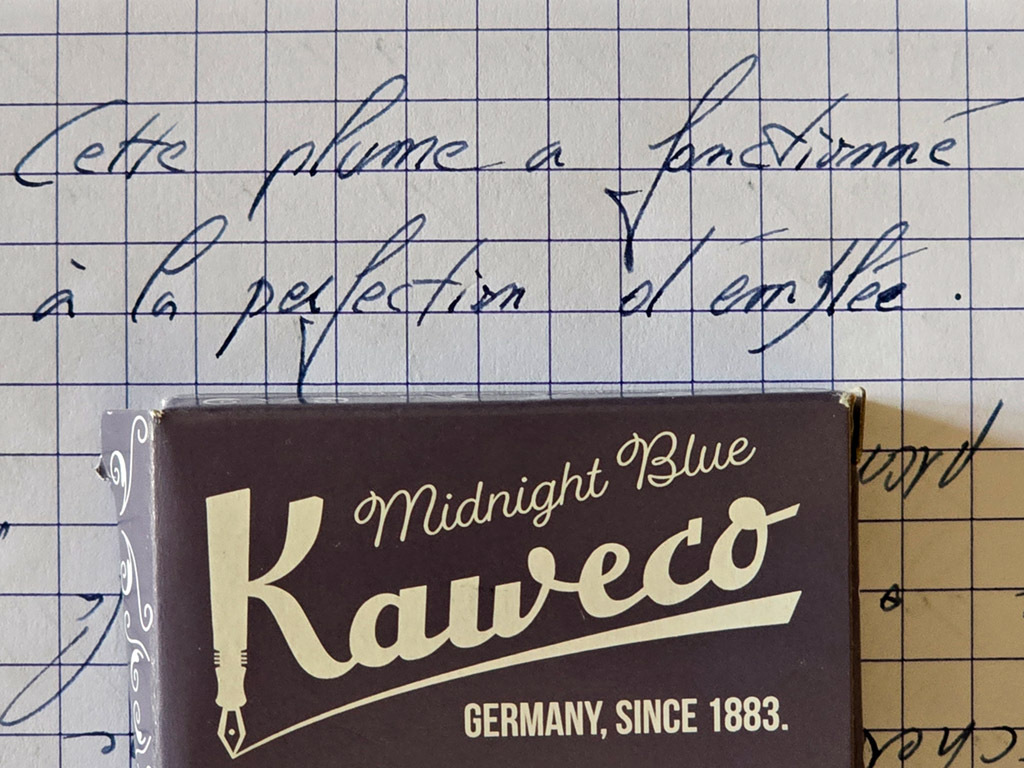 Cette plume a fonctionné
à la perfection d'emblée.
Midnight Blue
Kaweco
GERMANY, SINCE 1883.